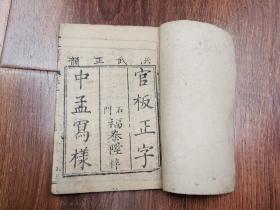 洪武正韻
官板正字
石門
福泰陞梓
中孟寫樣